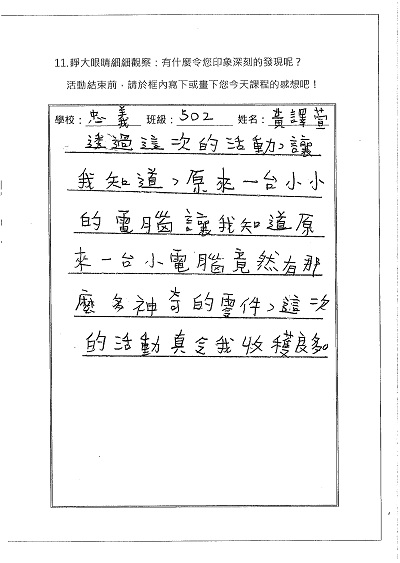 11.睜大眼睛細細觀察：有什麼令您印象深刻的發現呢？
活動結束前，請於框內寫下或畫下您今天課程的感想吧！
學校：忠義 班級：502 姓名：黃譯萱
透過這次的活動，讓
我知道，原來一台小小
的電腦讓我知道原
來一台小電腦竟然有那
麼多神奇的零件，這次
的活動真令我收穫良多